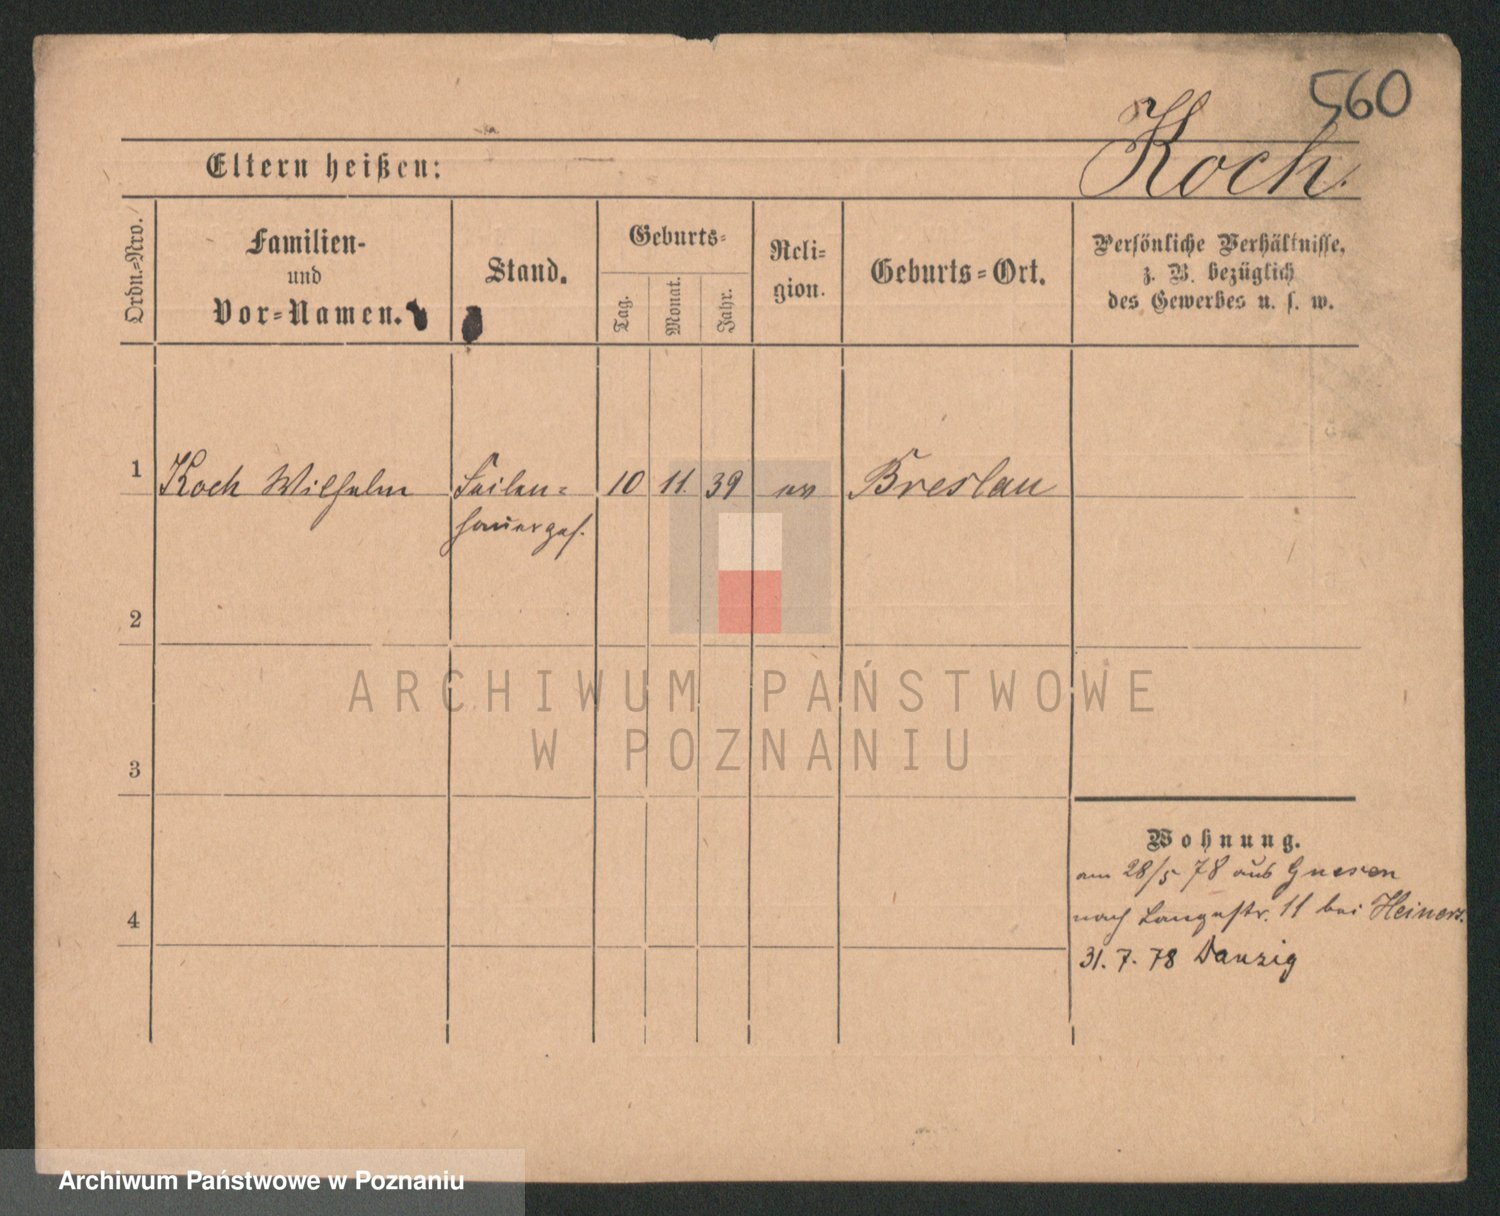 560
Koch.
Eltern heißen:
Ordn.=Nro.
Familien-
und
Vor=Namen.
Stand.
Geburts=
Tag.
Monat.
Jahr.
Reli=
gion.
Geburts=Ort.
Persönliche Verhältnisse,
z. B. bezüglich
des Gewerbes u. s. w.
1 Koch Wilhelm Feilen= 10 11. 39 ev Breslau
hauerges.
2
3
4
Wohnung.
am 28/5 78 aus Gnesen
nach Langestr. 11 bei Heiners.
31. 7. 78 Danzig
ARCHIWUM PAŃSTWOWE
W POZNANIU
Archiwum Państwowe w Poznaniu